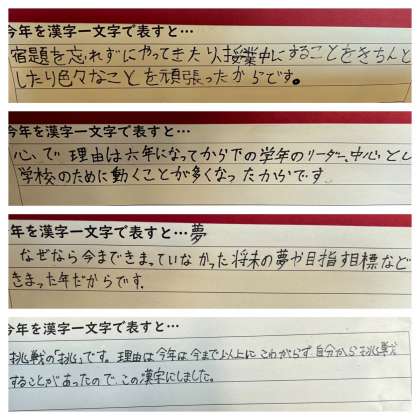 今年を漢字一文字で表すと…
宿題を忘れずにやってきたり、授業中にすることをきちんと
したり色々なことを頑張ったからです。
今年を漢字一文字で表すと…
心」で 理由は六年になってから下の学年のリーダー、中心とし
学校のために動くことが多くなったからです
年を漢字一文字で表すと…夢
なぜなら今まできまっていなかった将来の夢や目指す目標など
きまった年だからです.
今年を漢字一文字で表すと…
挑戦の「挑」です。理由は今年は今まで以上に こわがらず 自分から挑戦
することがあったので この漢字にしました。